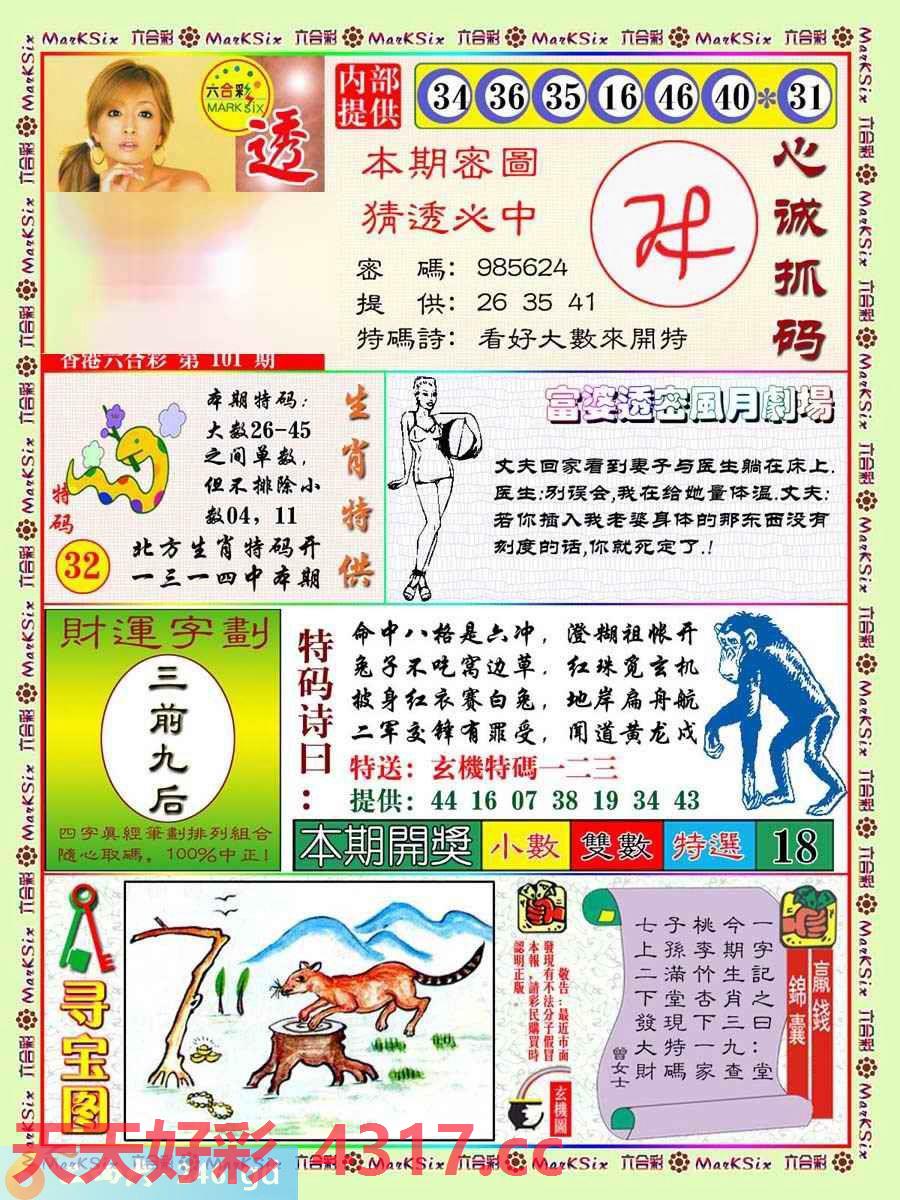 MarKSix 六合彩 MarKSix 六合彩 MarKSix 六合彩 MarKSix 六合彩 MarKSix 六合彩
六合彩
MARK SIX
透
内部
提供
34 36 35 16 46 40 * 31
本期密圖
猜透必中
密 碼: 985624
提 供: 26 35 41
特碼詩: 看好大數來開特
心诚抓码
香港六合彩 第 101 期
本期特码:
大数26-45
之间单数,
但不排除小
数04, 11
北方生肖特码开
一三一四中本期
特码
32
生肖特供
富婆透密風月劇場
丈夫回家看到妻子与医生躺在床上.
医生:别误会,我在给她量体温.丈夫:
若你插入我老婆身体的那东西没有
刻度的话,你就死定了.!
財運字劃
三前九后
四字真經筆劃排列組合
隨心取碼。100%中正!
特码诗曰:
命中八格是六冲, 澄糊祖帐开
兔子不吃窝边草, 红珠觅玄机
披身红衣赛白兔, 地岸扁舟航
二军交锋有罪受, 闻道黄龙戍
特送: 玄機特碼一二三
提供: 44 16 07 38 19 34 43
本期開獎 小數 雙數 特選 18
寻宝图
敬告:最近市面
發現有不法分子假冒
本報,請彩民購買時
認明正版。
玄機圖
一字記之曰:堂
今期生肖三九查
桃李竹杏下一家
子孫滿堂現特碼
七上二下發大財
曾女士
贏錢
錦囊
天天好彩 4317.cc